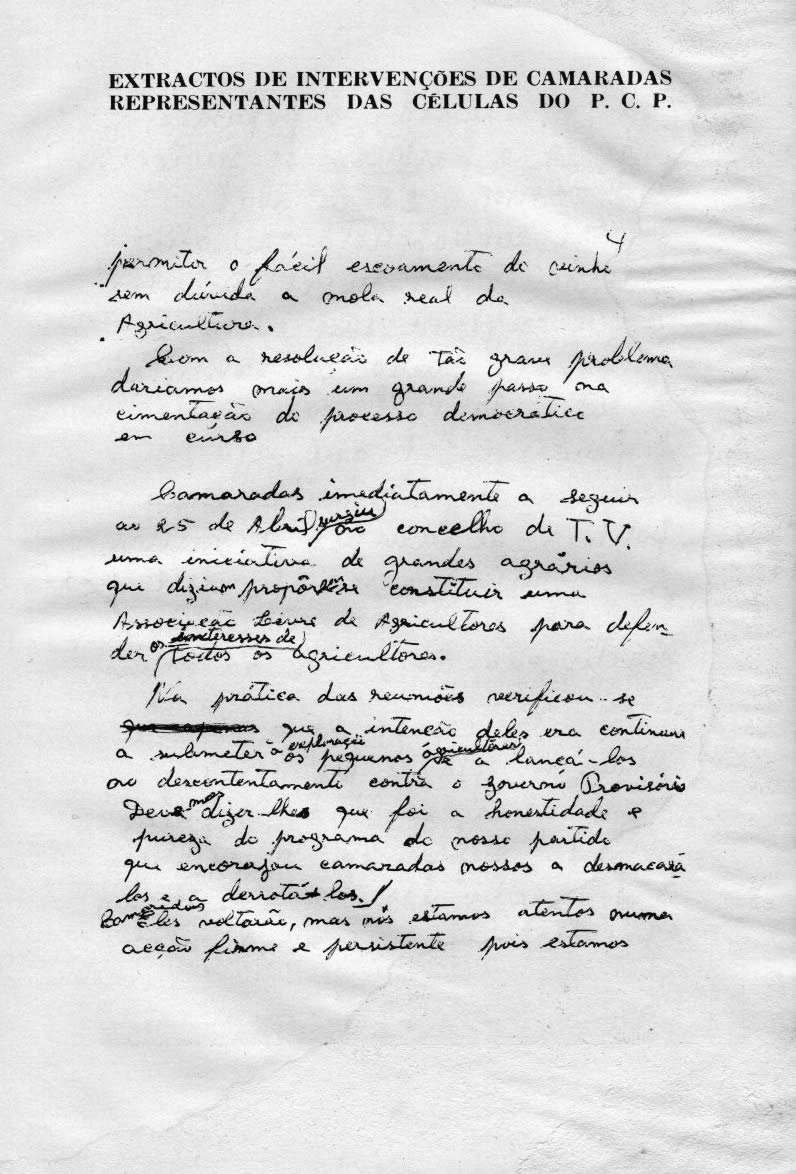 EXTRACTOS DE INTERVENÇÕES DE CAMARADAS
REPRESENTANTES DAS CÉLULAS DO P. C. P.
4
permitir o fácil escoamento do vinho
sem dúvida a mola real da
Agricultura.
Com a resolução de tão grave problema
dariamos mais um grande passo na
cimentação do processo democrático
em curso
Camaradas imediatamente a seguir
ao 25 de Abril surgiu no concelho de T. V.
uma iniciativa de grandes agrários
que diziam propôrem-se constituir uma
Associação Livre de Agricultores para defen-
der os interesses de todos os agricultores.
Na prática das reuniões verificou-se
que a intenção deles era continuar
a submeter à exploração os pequenos agricultores e a lançá-los
ao descontentamento contra o governo Provisório
Devemos dizer-lhes que foi a honestidade e
pureza do programa do nosso partido
que encorajou camaradas nossos a desmacará
los e a derrotá-los.
Camaradas Eles voltarão, mas nós estamos atentos numa
acção firme e persistente pois estamos